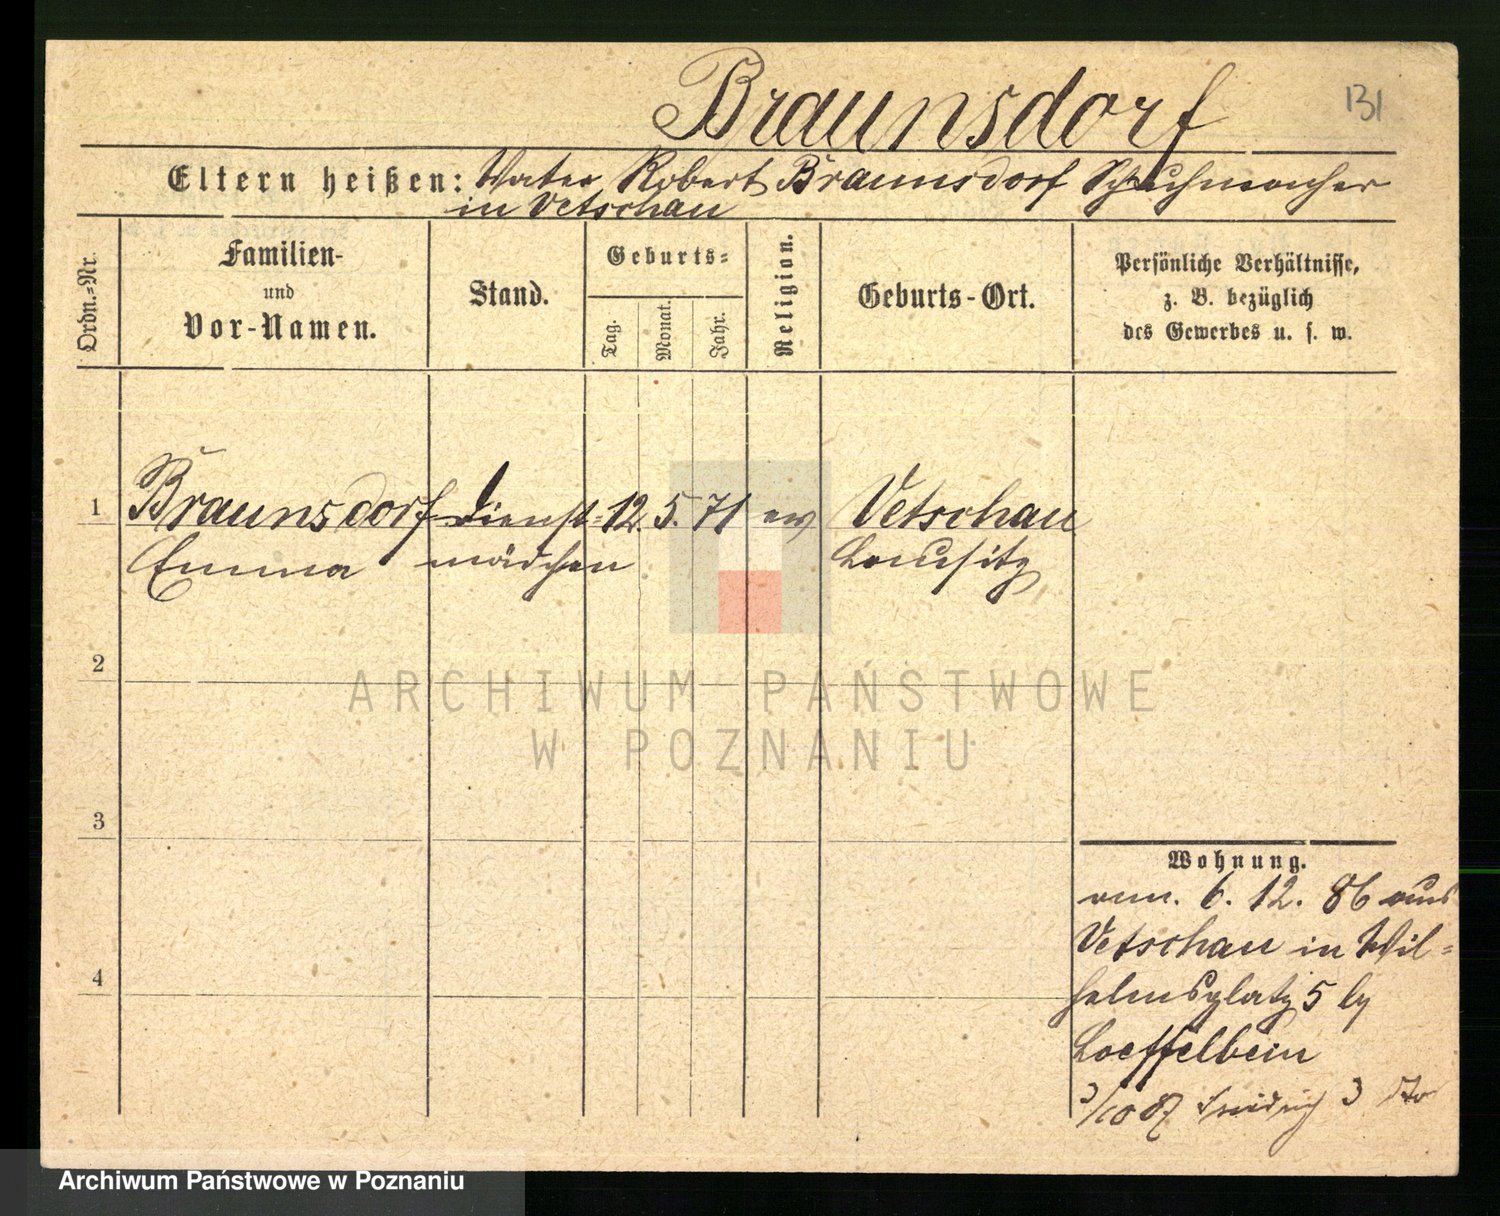 Braunsdorf
131
Eltern heißen: Vater Robert Braunsdorf Schuhmacher
in Vetschau
Ordn.=Nr.
Familien-
und
Vor-Namen.
Stand.
Geburts=
Tag.
Monat.
Jahr.
Religion.
Geburts-Ort.
Persönliche Verhältnisse,
z. B. bezüglich
des Gewerbes u. s. w.
1 Braunsdorf Dienst= 12. 5. 71 ev Vetschau
Emma mädchen Lausitz
2
3
4
Wohnung.
6. 12. 86 aus
Vetschau in Wil=
helmsplatz 5 by
Loeffelbein
3/10 87 Friedrich 3
ARCHIWUM PAŃSTWOWE
W POZNANIU
Archiwum Państwowe w Poznaniu